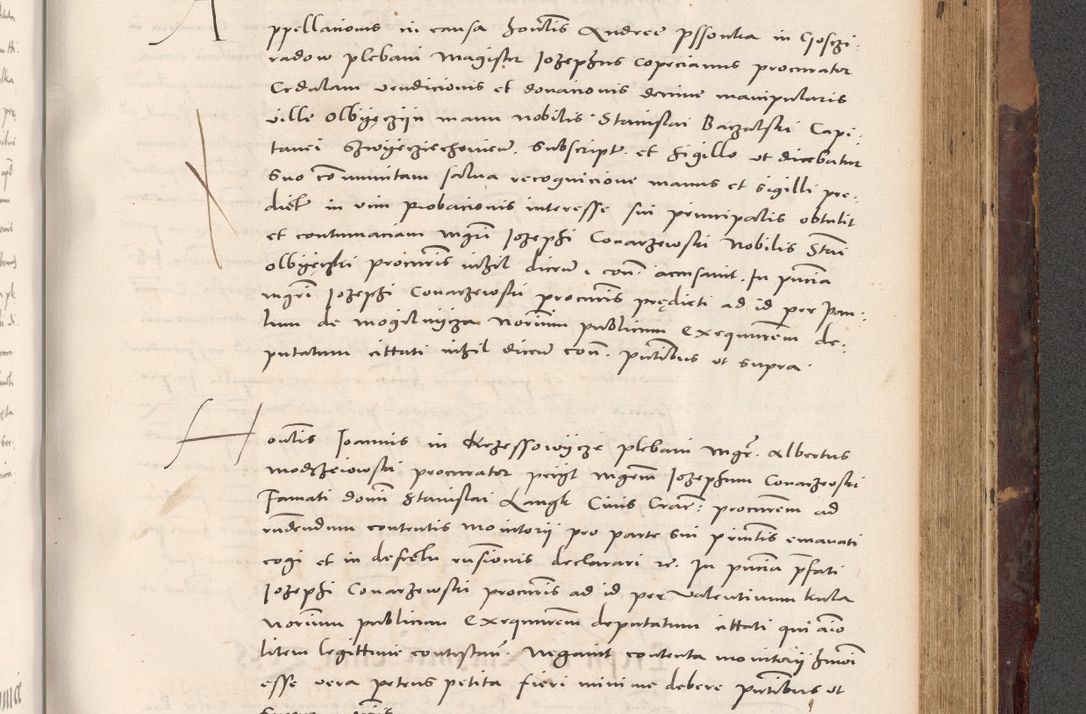 Appellacionis in causa honorabilis Andree pssontka in Goszi-
radow plebani Magister Jozephus Copecianus procurator
Cedulam vendicionis et donacionis decime manipularis
ville Olbyęczyn manu nobilis Stanislai Baczalski Capi-
tanei subscript. et sigillo ut dicebatur
suo communitam salva recognicione manus et sigilli pre-
dict. in vim probacionis interesse sui principalis obtulit
et contumaciam mgri Jozephi Conarzewski Nobilis Stani
olbyęczki procuris nihil dicen. con. accusavit. In pncia
mgri Jozephi Conarzewski procuris prędicti ad id per pau-
lum de mogilnycza Norium publicum Exequutorem de-
putatum cittati nihil dicen. con. pntibus ut supra.
Honlis Joannis in Rzessowycze plebani mgr. Albertus
modzeiowski procurator petyt mgrum Jozephum Conarzewski
Famati domini Stanislai Langk Civis Crac. procurem ad
rndendum contentis monitorii pro parte sui prinlis emanati
cogi et in defectu rnsionis declarari rc. In pncia pfati
Jozephi Conarzewski procuris ad id per Valentinum kula
Norium publicum Exequutorem deputatum cittati qui aio
litem legittime contestan. Negavit contenta monitorii hmoi
esse vera petens petita fieri minime debere pntibus ut